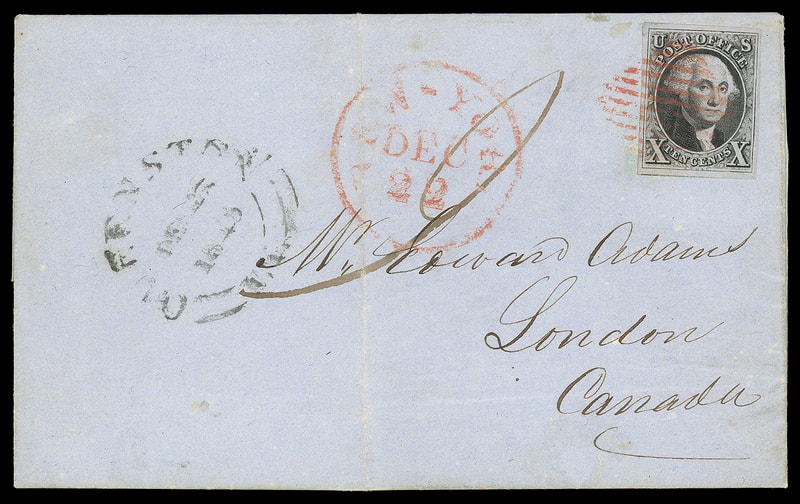 U S
POST OFFICE
X TEN CENTS X
NEW-YORK
DEC
22
QUEENSTON
DE 26
1848
Mr. Edward Adams
London
Canada